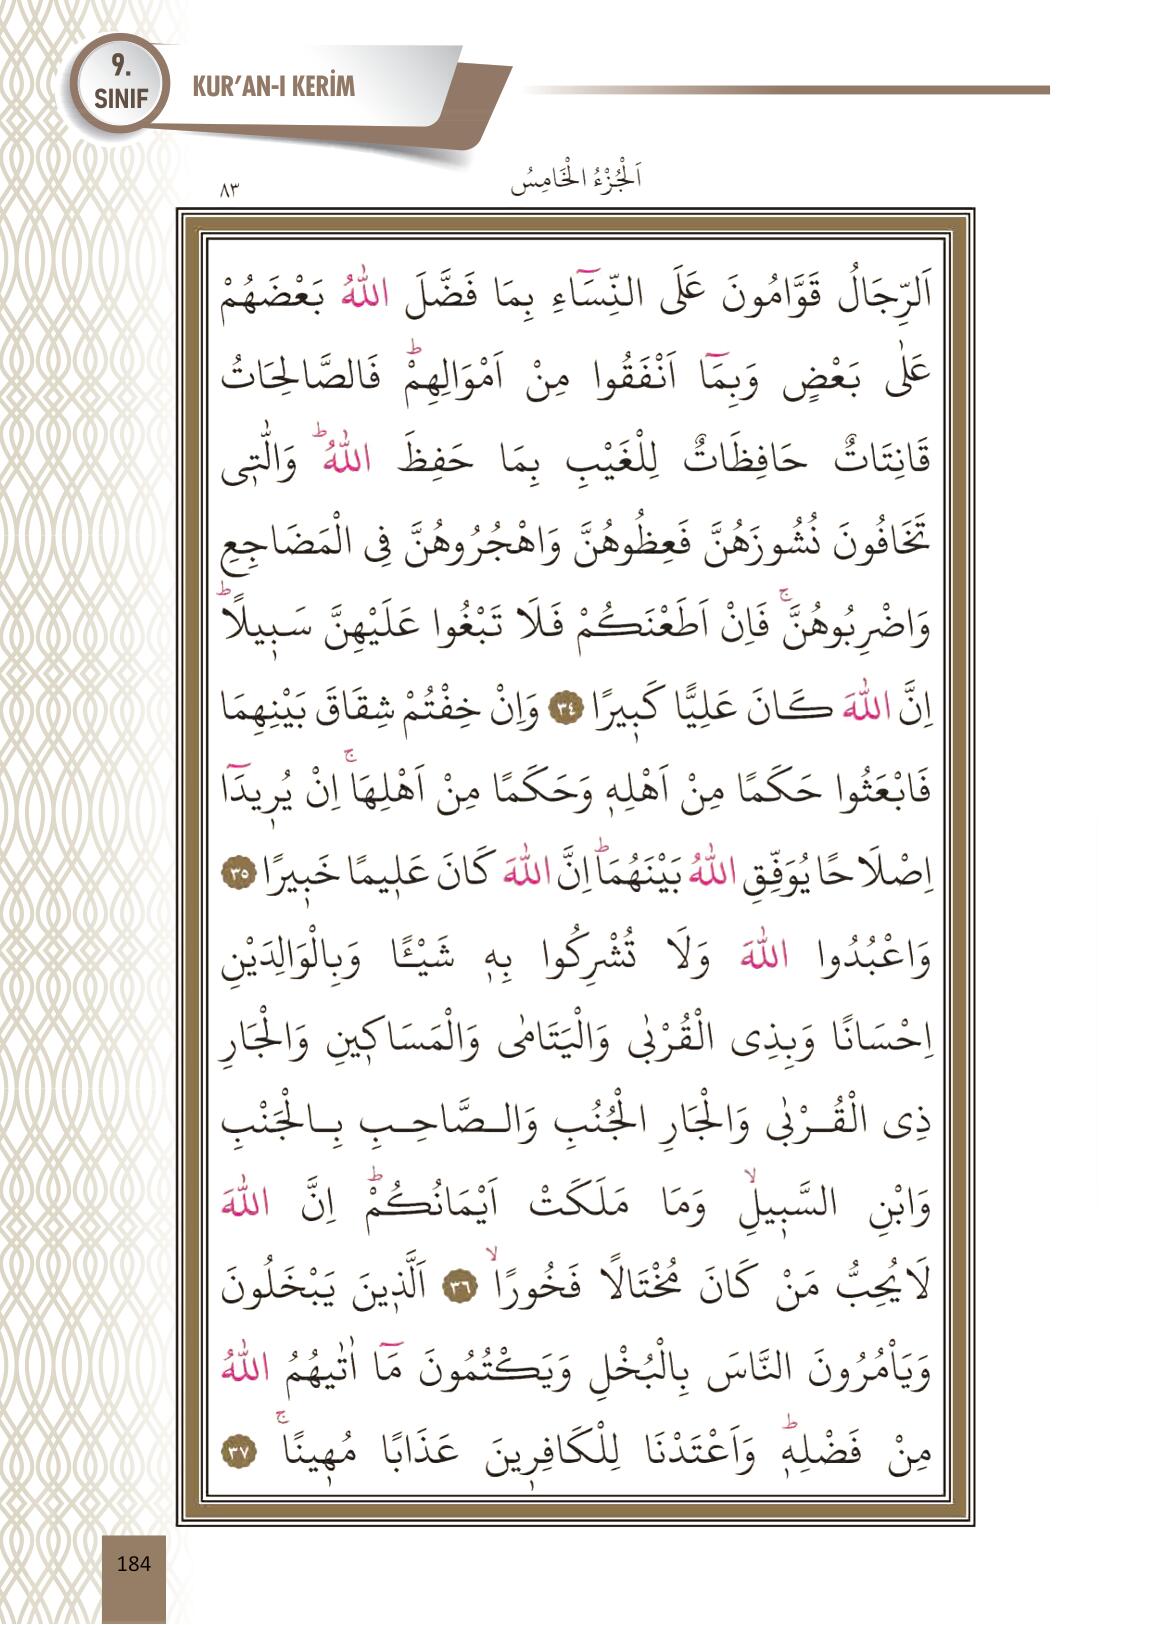 9.
SINIF
KUR'AN-I KERİM
اَلْجُزْءُ الْخَامِسُ
٨٣
اَلرِّجَالُ قَوَّامُونَ عَلَى النِّسَٓاءِ بِمَا فَضَّلَ اللّٰهُ بَعْضَهُمْ
عَلٰى بَعْضٍ وَبِمَٓا اَنْفَقُوا مِنْ اَمْوَالِهِمْۜ فَالصَّالِحَاتُ
قَانِتَاتٌ حَافِظَاتٌ لِلْغَيْبِ بِمَا حَفِظَ اللّٰهُۜ وَالّٰت۪ى
تَخَافُونَ نُشُوزَهُنَّ فَعِظُوهُنَّ وَاهْجُرُوهُنَّ فِى الْمَضَاجِعِ
وَاضْرِبُوهُنَّۚ فَاِنْ اَطَعْنَكُمْ فَلَا تَبْغُوا عَلَيْهِنَّ سَب۪يلًاۜ
اِنَّ اللّٰهَ كَانَ عَلِيًّا كَب۪يرًا ٣٤ وَاِنْ خِفْتُمْ شِقَاقَ بَيْنِهِمَا
فَابْعَثُوا حَكَمًا مِنْ اَهْلِه۪ وَحَكَمًا مِنْ اَهْلِهَاۚ اِنْ يُر۪يدَٓا
اِصْلَاحًا يُوَفِّقِ اللّٰهُ بَيْنَهُمَاۜ اِنَّ اللّٰهَ كَانَ عَل۪يمًا خَب۪يرًا ٣٥
وَاعْبُدُوا اللّٰهَ وَلَا تُشْرِكُوا بِه۪ شَيْـًٔا وَبِالْوَالِدَيْنِ
اِحْسَانًا وَبِذِى الْقُرْبٰى وَالْيَتَامٰى وَالْمَسَاك۪ينِ وَالْجَارِ
ذِى الْقُرْبٰى وَالْجَارِ الْجُنُبِ وَالصَّاحِبِ بِالْجَنْبِ
وَابْنِ السَّب۪يلِۙ وَمَا مَلَكَتْ اَيْمَانُكُمْۜ اِنَّ اللّٰهَ
لَا يُحِبُّ مَنْ كَانَ مُخْتَالًا فَخُورًاۙ ٣٦ اَلَّذ۪ينَ يَبْخَلُونَ
وَيَأْمُرُونَ النَّاسَ بِالْبُخْلِ وَيَكْتُمُونَ مَٓا اٰتٰيهُمُ اللّٰهُ
مِنْ فَضْلِه۪ۜ وَاَعْتَدْنَا لِلْكَافِر۪ينَ عَذَابًا مُه۪ينًاۚ ٣٧
184